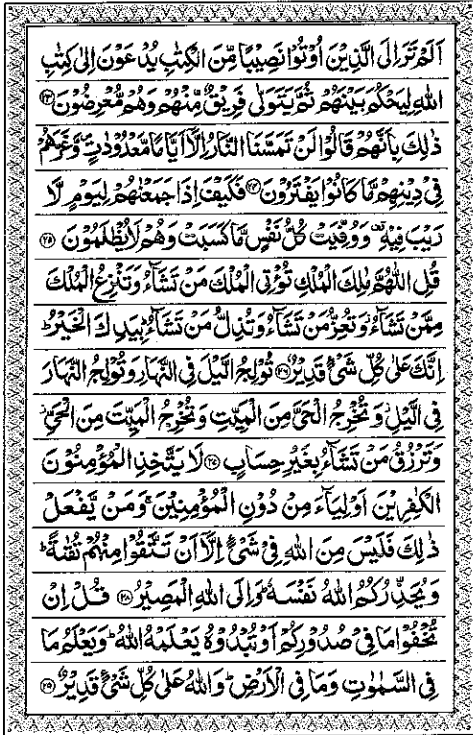 اَلَمْ تَرَ اِلَى الَّذِيْنَ اُوْتُوْا نَصِيْبًا مِّنَ الْكِتٰبِ يُدْعَوْنَ اِلٰى كِتٰبِ
اللّٰهِ لِيَحْكُمَ بَيْنَهُمْ ثُمَّ يَتَوَلّٰى فَرِيْقٌ مِّنْهُمْ وَهُمْ مُّعْرِضُوْنَ ﴿۲۳﴾
ذٰلِكَ بِاَنَّهُمْ قَالُوْا لَنْ تَمَسَّنَا النَّارُ اِلَّاۤ اَيَّامًا مَّعْدُوْدٰتٍ وَّغَرَّهُمْ
فِيْ دِيْنِهِمْ مَّا كَانُوْا يَفْتَرُوْنَ ﴿۲۴﴾ فَكَيْفَ اِذَا جَمَعْنٰهُمْ لِيَوْمٍ لَّا
رَيْبَ فِيْهِ وَوُفِّيَتْ كُلُّ نَفْسٍ مَّا كَسَبَتْ وَهُمْ لَا يُظْلَمُوْنَ ﴿۲۵﴾
قُلِ اللّٰهُمَّ مٰلِكَ الْمُلْكِ تُؤْتِى الْمُلْكَ مَنْ تَشَآءُ وَتَنْزِعُ الْمُلْكَ
مِمَّنْ تَشَآءُ وَتُعِزُّ مَنْ تَشَآءُ وَتُذِلُّ مَنْ تَشَآءُ بِيَدِكَ الْخَيْرُ ؕ
اِنَّكَ عَلٰى كُلِّ شَىْءٍ قَدِيْرٌ ﴿۲۶﴾ تُوْلِجُ الَّيْلَ فِى النَّهَارِ وَتُوْلِجُ النَّهَارَ
فِى الَّيْلِ وَتُخْرِجُ الْحَىَّ مِنَ الْمَيِّتِ وَتُخْرِجُ الْمَيِّتَ مِنَ الْحَىِّ
وَتَرْزُقُ مَنْ تَشَآءُ بِغَيْرِ حِسَابٍ ﴿۲۷﴾ لَا يَتَّخِذِ الْمُؤْمِنُوْنَ
الْكٰفِرِيْنَ اَوْلِيَآءَ مِنْ دُوْنِ الْمُؤْمِنِيْنَ ۚ وَمَنْ يَّفْعَلْ
ذٰلِكَ فَلَيْسَ مِنَ اللّٰهِ فِىْ شَىْءٍ اِلَّاۤ اَنْ تَتَّقُوْا مِنْهُمْ تُقٰىةً ؕ
وَيُحَذِّرُكُمُ اللّٰهُ نَفْسَهٗ ؕ وَاِلَى اللّٰهِ الْمَصِيْرُ ﴿۲۸﴾ قُلْ اِنْ
تُخْفُوْا مَا فِىْ صُدُوْرِكُمْ اَوْ تُبْدُوْهُ يَعْلَمْهُ اللّٰهُ ؕ وَيَعْلَمُ مَا
فِى السَّمٰوٰتِ وَمَا فِى الْاَرْضِ ؕ وَاللّٰهُ عَلٰى كُلِّ شَىْءٍ قَدِيْرٌ ﴿۲۹﴾